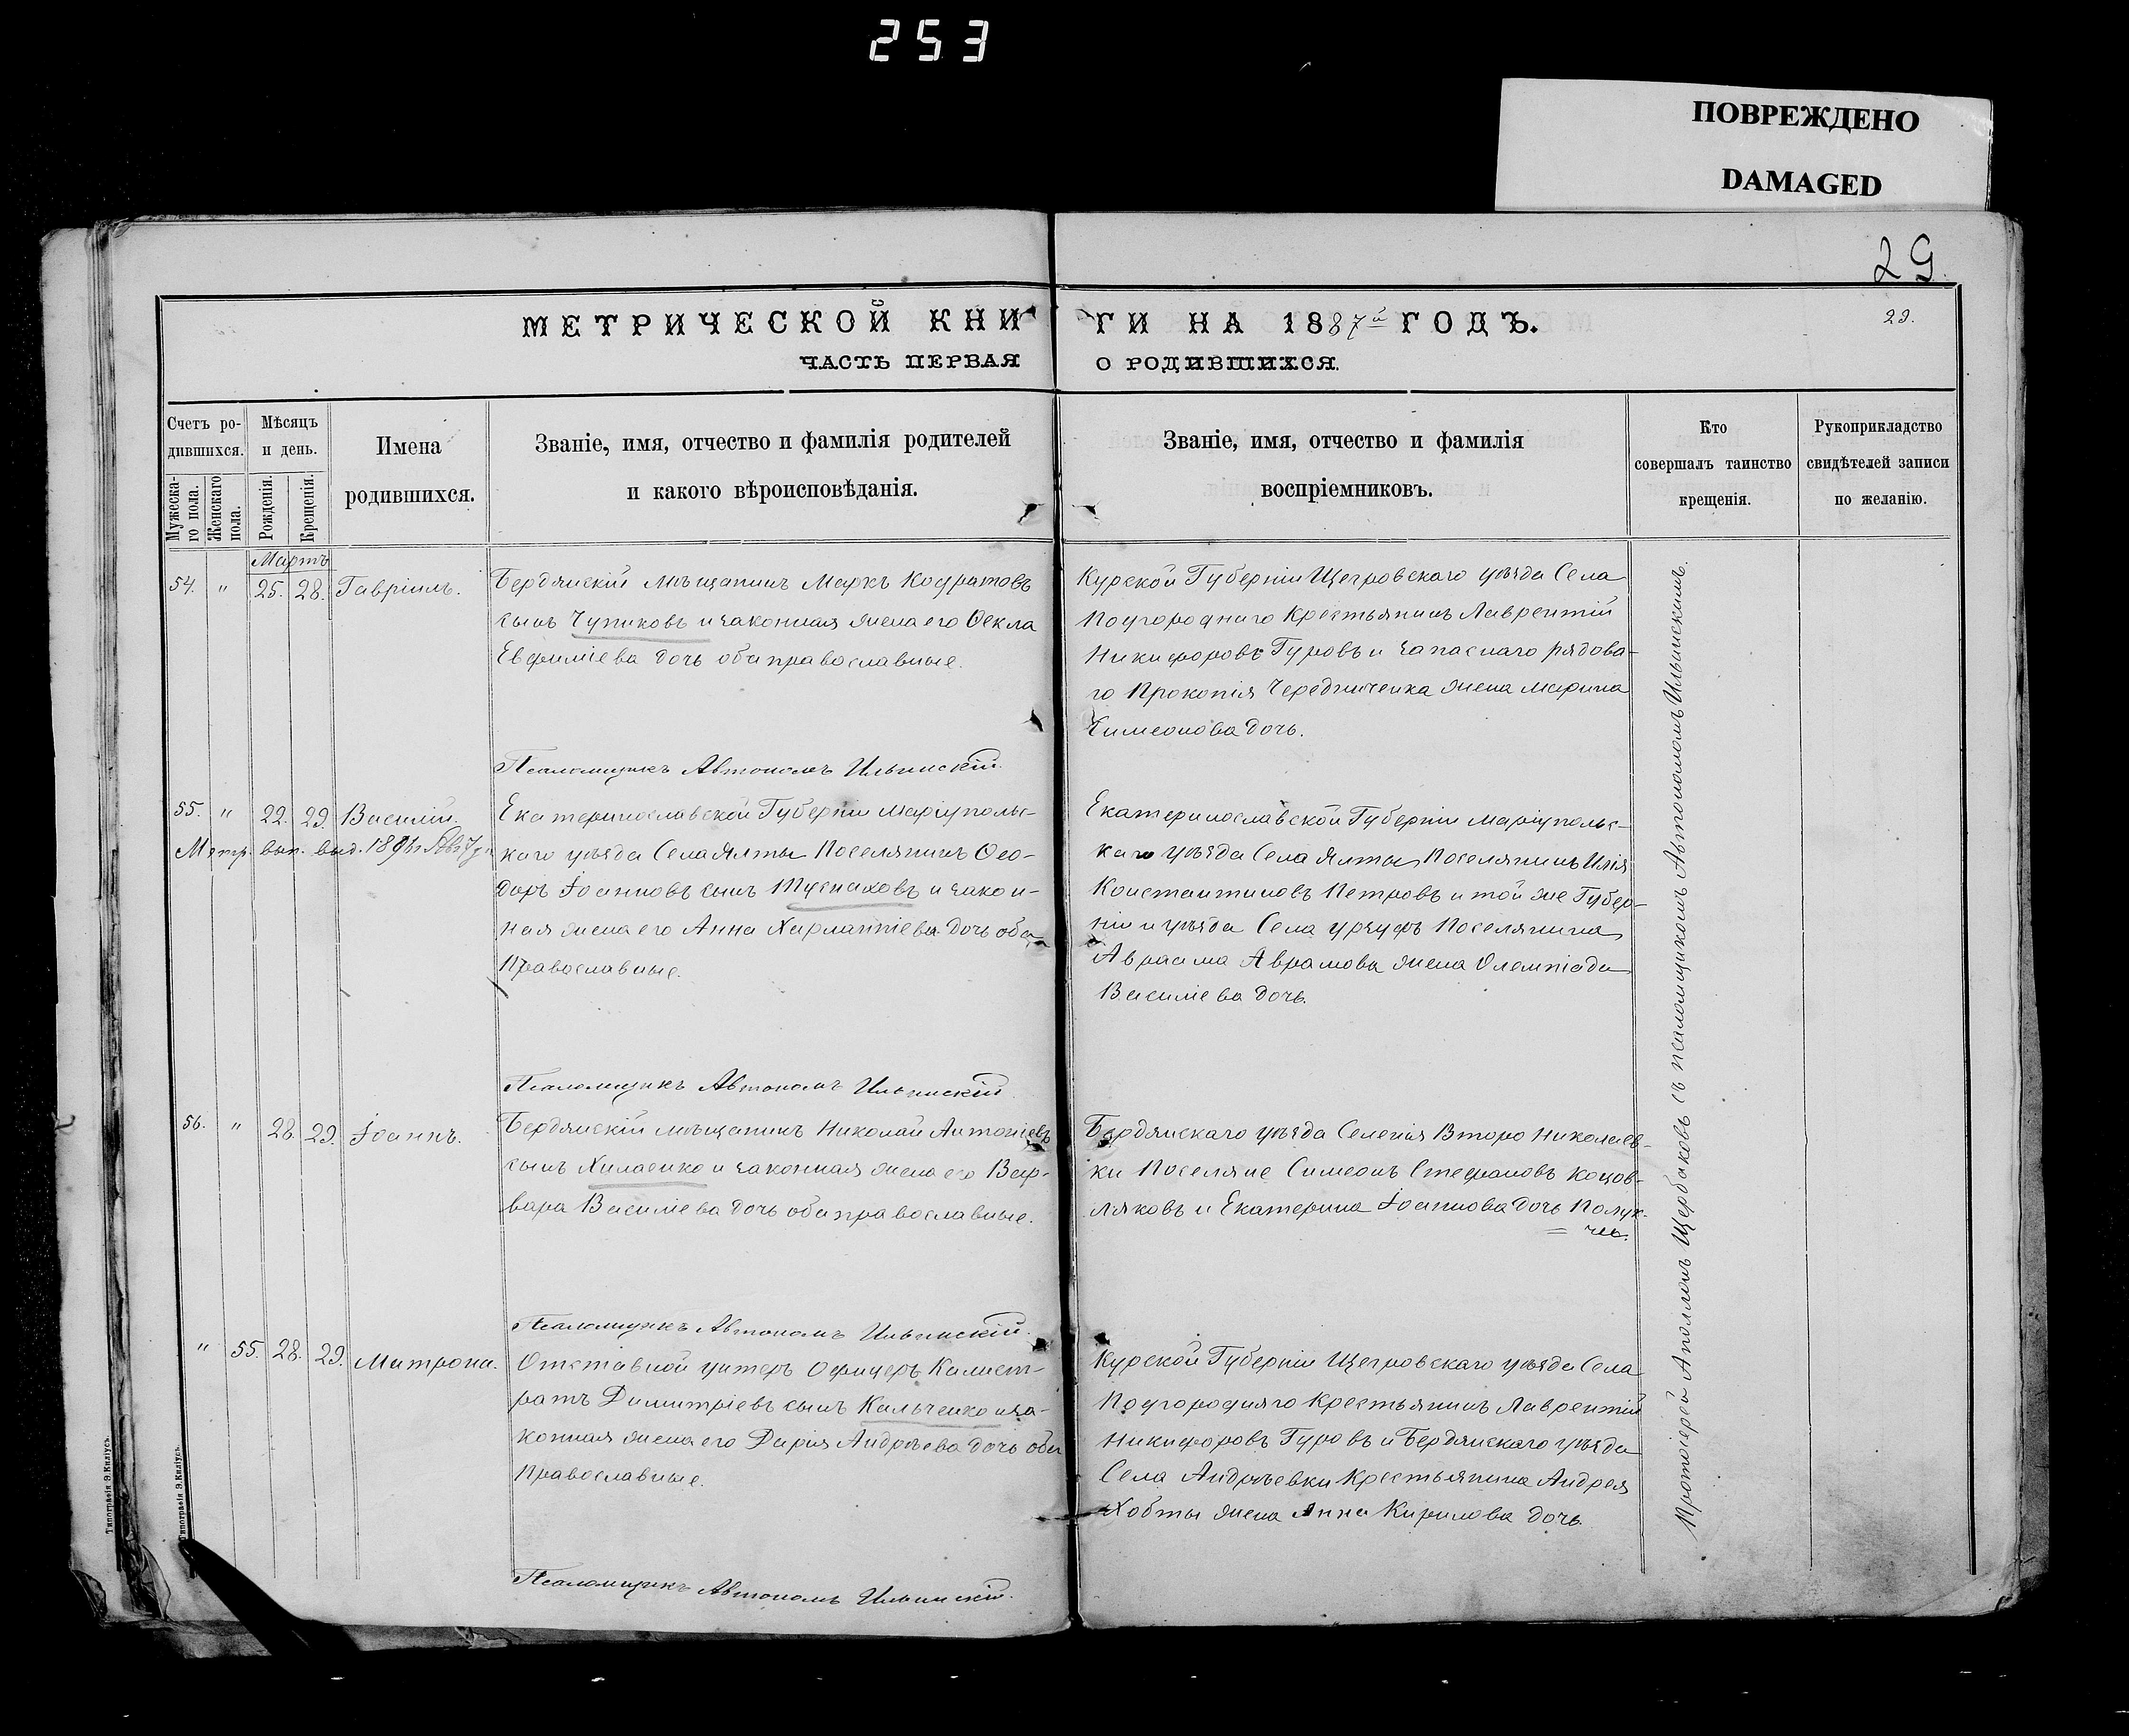 253
ПОВРЕЖДЕНО
DAMAGED
29.
МЕТРИЧЕСКОЙ КНИГИ НА 1887й ГОДЪ.
29.
ЧАСТЬ ПЕРВАЯ О РОДИВШИХСЯ.
Счетъ ро-
дившихся.
Мужеска-
го пола.
Женскаго
пола.
Мѣсяцъ
и день.
Рожденія.
Крещенія.
Имена
родившихся.
Званіе, имя, отчество и фамилія родителей
и какого вѣроисповѣданія.
Званіе, имя, отчество и фамилія
воспріемниковъ.
Кто
совершалъ таинство
крещенія.
Рукоприкладство
свидѣтелей записи
по желанію.
Мартъ
54. " 25. 28. Гавріилъ.
Бердянскій мѣщанинъ Маркъ Кодратовъ
сынъ Чупиковъ и законная жена его Ѳекла
Евфиміева дочь оба православные.
Псаломщикъ Автономъ Ильинскій.
Курской Губерніи Щегровскаго уѣзда Села
Подгороднаго Крестьянинъ Лаврентій
Никифоровъ Гуровъ и запаснаго рядова-
го Прокопія Чередниченка жена Марина
Симеонова дочь.
55. " 22. 29. Василій.
Метр. вып. выд.
Екатеринославской Губерніи Маріуполь-
каго уѣзда Села Ялты Поселянинъ Ѳео-
доръ Іоанновъ сынъ и закон-
ная жена его Анна Харлампіева дочь оба
Православные.
Псаломщикъ Автономъ Ильинскій.
Екатеринославской Губерніи Маріупольс-
каго уѣзда Села Ялты Поселянинъ Илія
Константиновъ Петровъ и той же Губер-
ніи и уѣзда Села Урзуфъ Поселянина
Авраама Аврамова жена Олемпіада
Василіева дочь.
56. " 28. 29. Іоаннъ.
Бердянскій мѣщанинъ Николай Антоніевъ
сынъ Хиласико и законная жена его Вар-
вара Василіева дочь оба православные.
Псаломщикъ Автономъ Ильинскій.
Бердянскаго уѣзда Селенія Второ Николаев-
ки Поселяне Симеонъ Стефановъ Коцов-
ляковъ и Екатерина Іоаннова дочь
" 55. 28. 29. Матрона.
Отставной унтеръ Офицеръ Калист-
ратъ Димитріевъ сынъ Кальченко и за-
конная жена его Дарія Андрѣева дочь оба
Православные.
Псаломщикъ Автономъ Ильинскій.
Курской Губерніи Щегровскаго уѣзда Села
Подгородняго Крестьянинъ Лаврентій
Никифоровъ Гуровъ и Бердянскаго уѣзда
Села Андрѣевки Крестьянина Андрея
Хобты жена Анна Кирилова дочь.
Протоіерей Аполлонъ Щербаковъ съ псаломщикомъ Автономомъ Ильинскимъ.
Типографія Э. Киліусъ.
Типографія Э. Киліусъ.